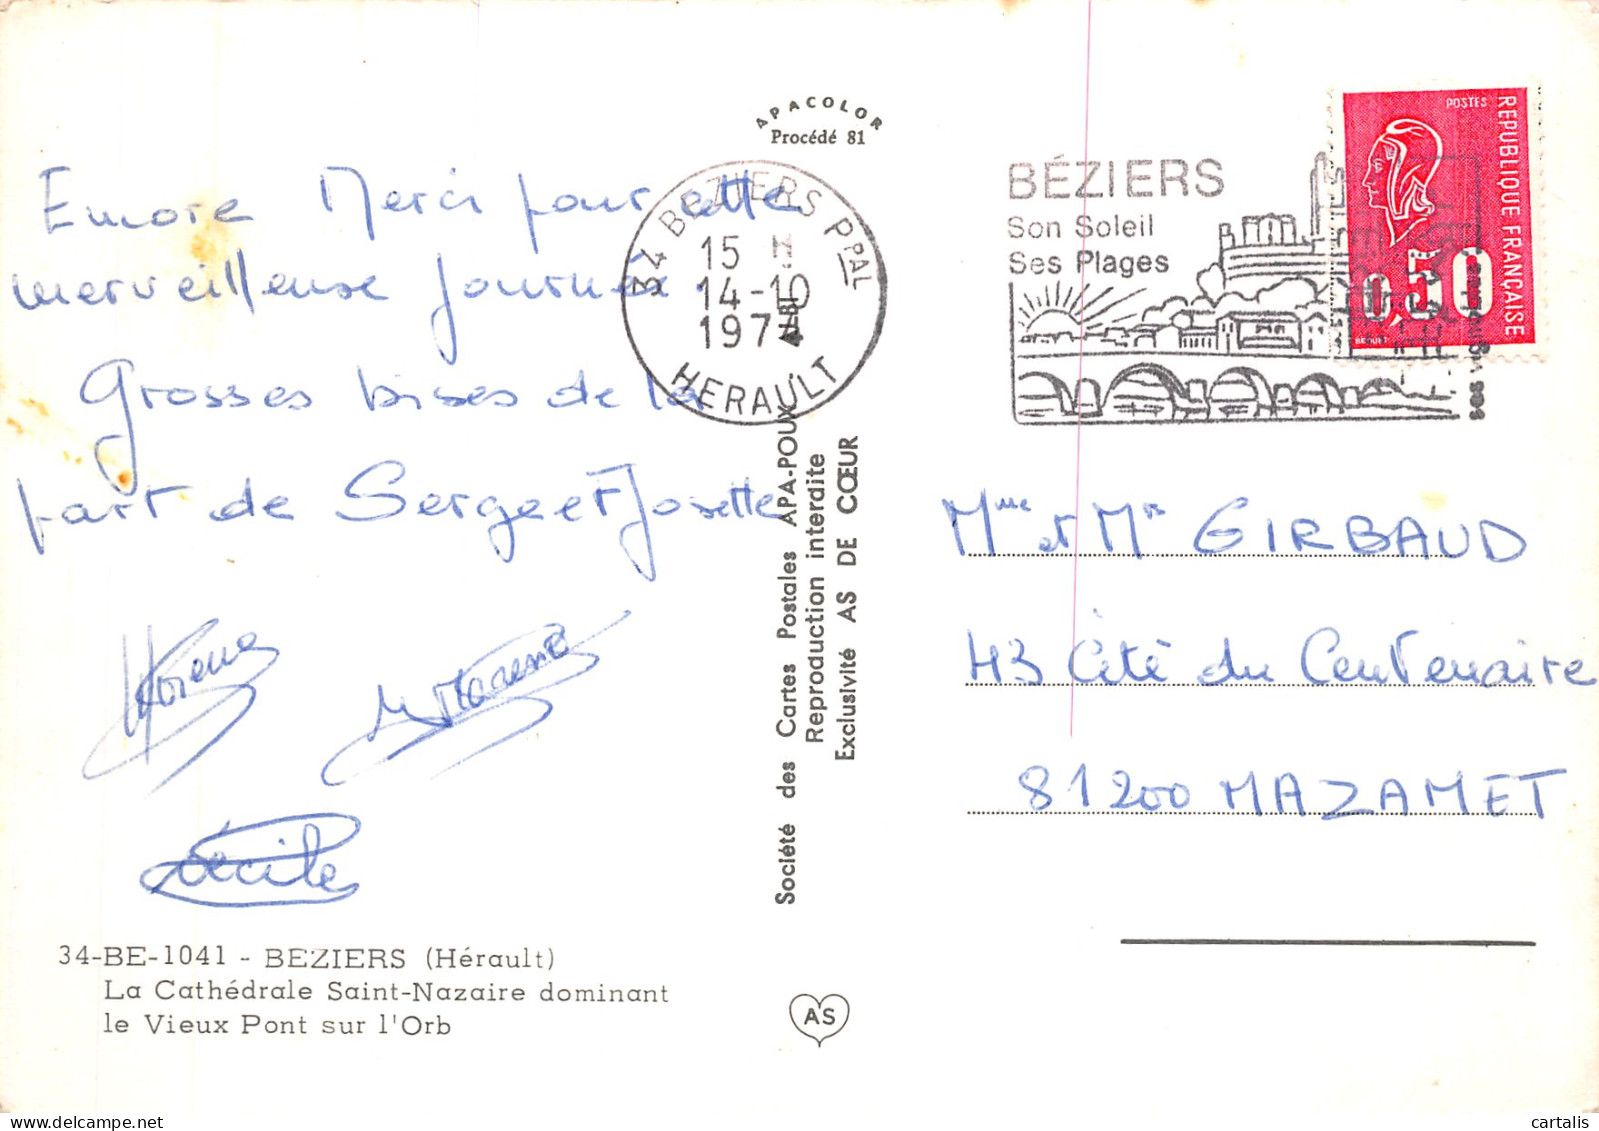 APACOLOR
Procédé 81
Encore Merci pour cette
merveilleuse journée.
Grosses bises de la
part de Serge et Josette
Cécile
34-BE-1041 - BEZIERS (Hérault)
La Cathédrale Saint-Nazaire dominant
le Vieux Pont sur l'Orb
34 BEZIERS PPAL
15 H
14-10
1974
HERAULT
Société des Cartes Postales APA-POUX
Reproduction interdite
Exclusivité AS DE CŒUR
AS
BÉZIERS
Son Soleil
Ses Plages
ses
POSTES
REPUBLIQUE FRANÇAISE
0,50
BEQUET
Mme et Mr GIRBAUD
43 Cité du Centenaire
81200 MAZAMET
cartalis.com